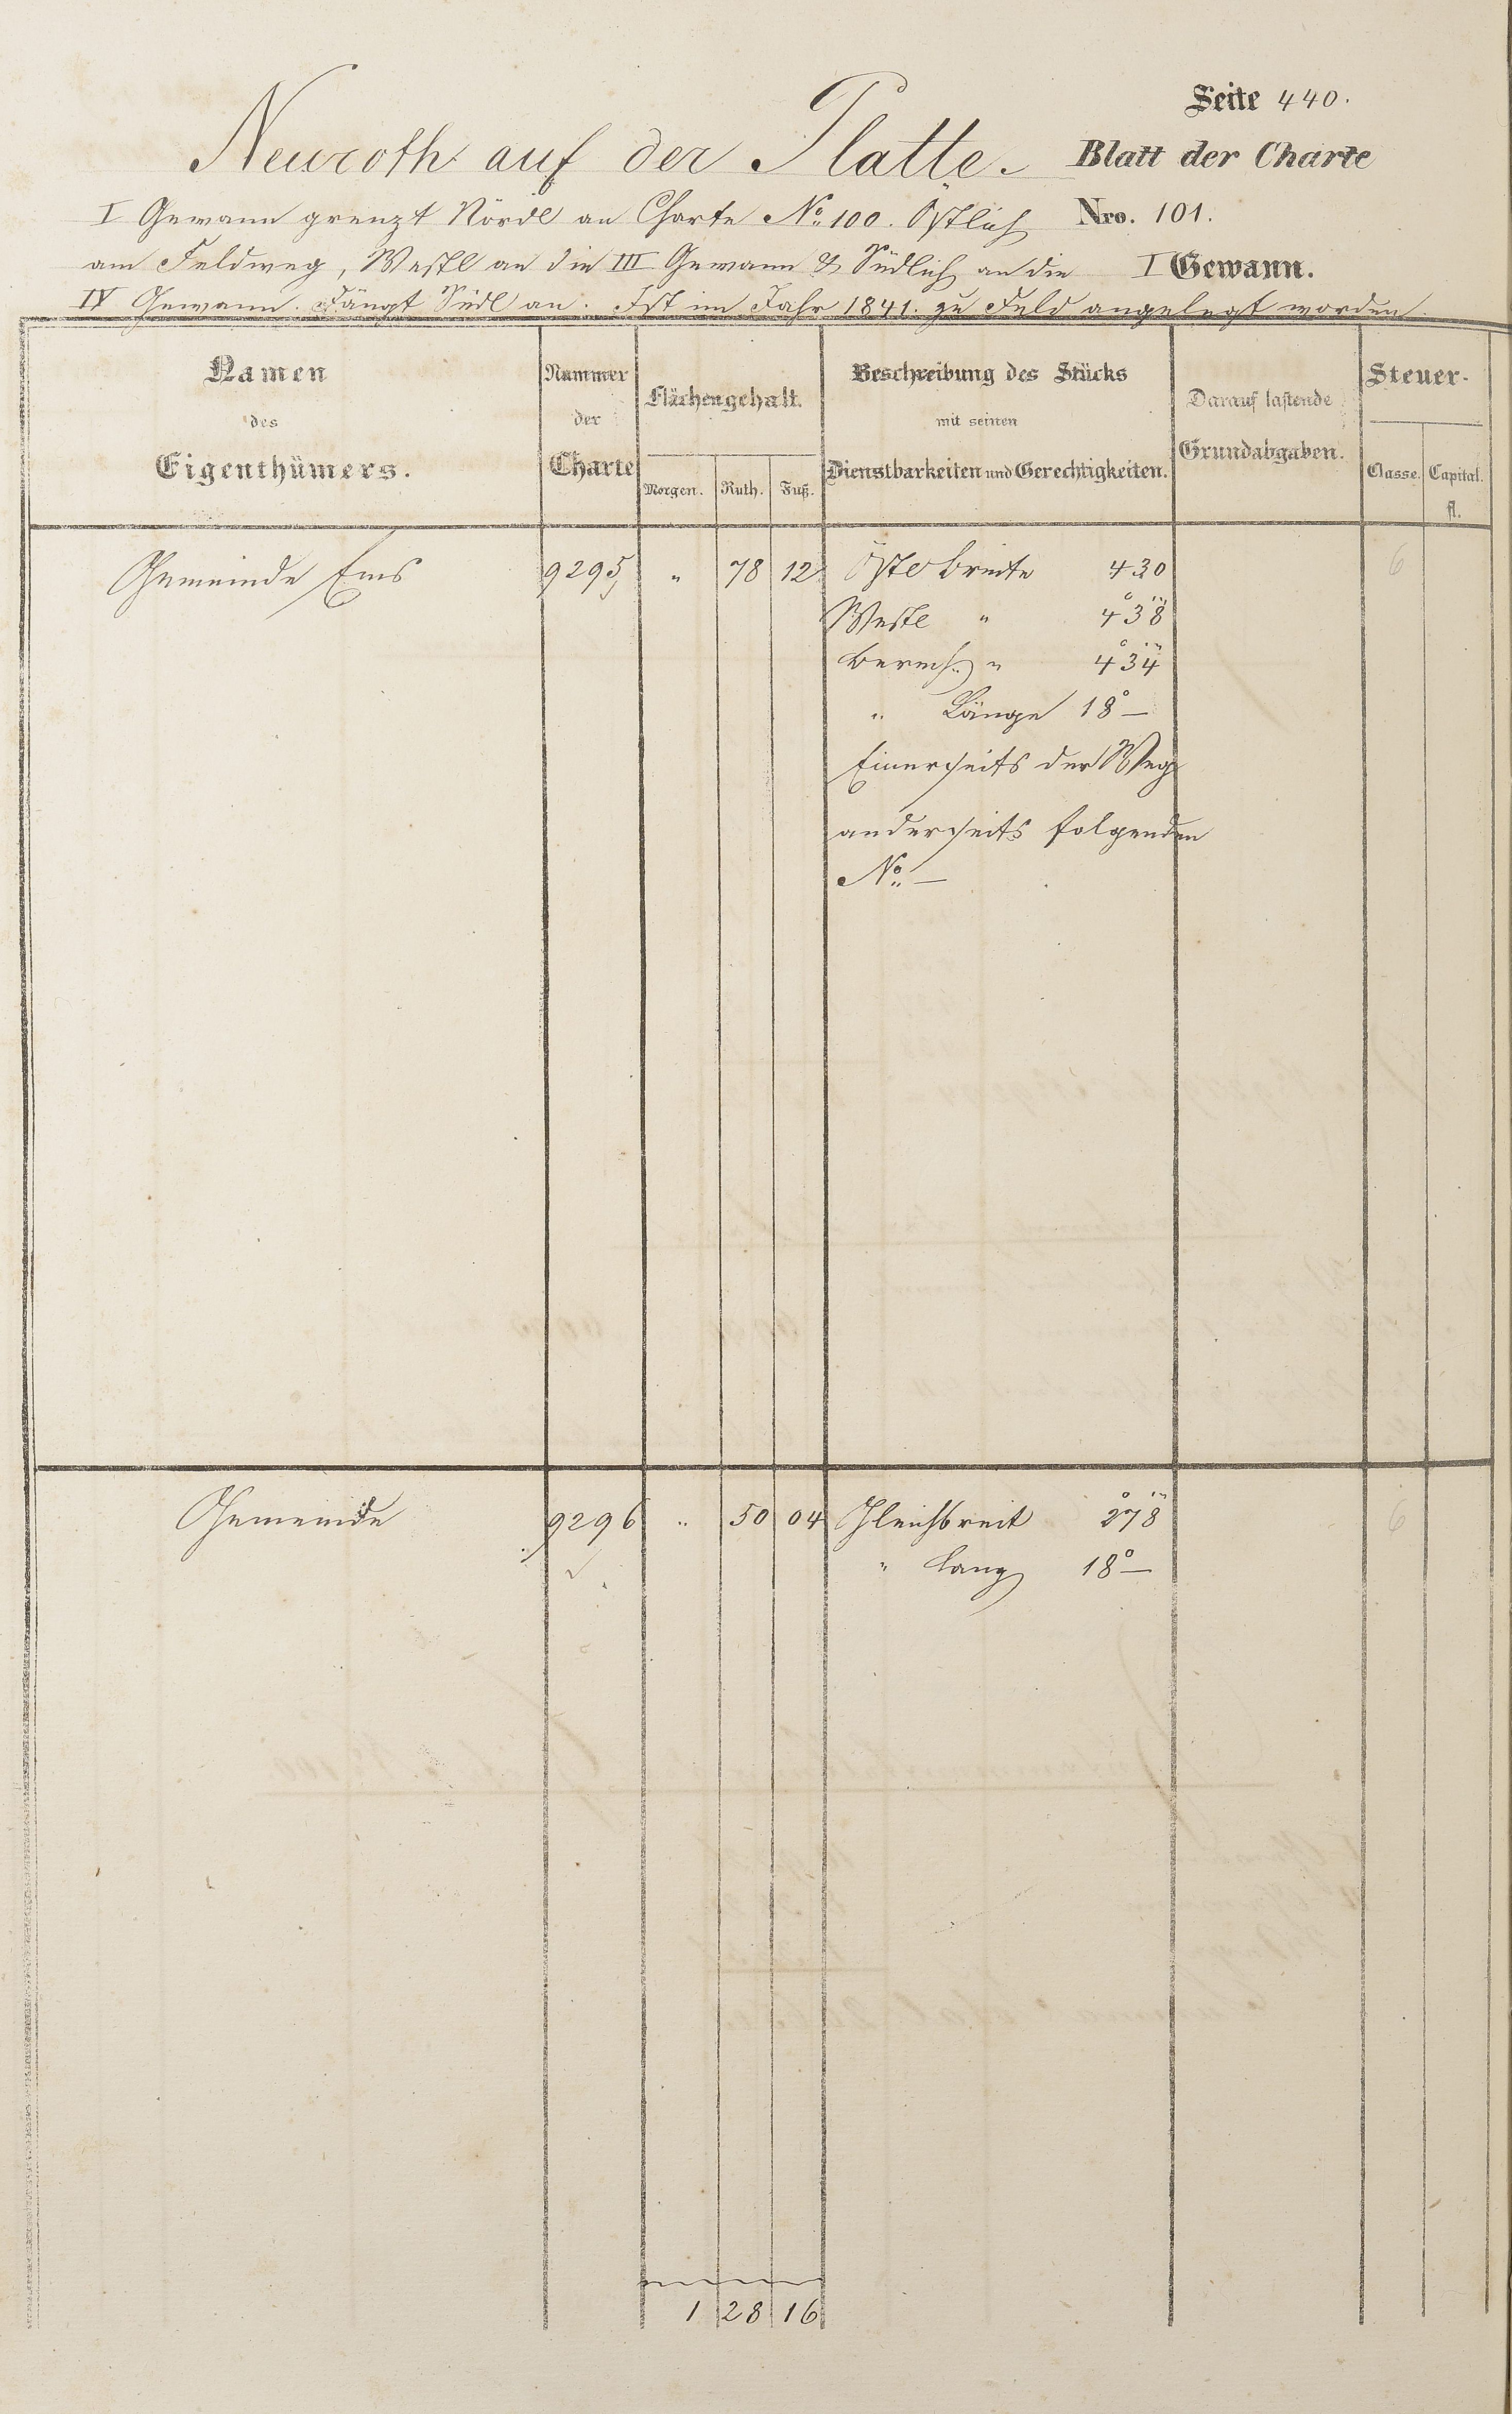 Seite 440.
Neuroth auf der Platte. Blatt der Charte
I Gewann grenzt Nördl an Charte No. 100. Östlich Nro. 101.
am Feldweg, Westl an die III Gewann & Südlich an die I Gewann.
IV Gewann. Fängt Südl an. Ist im Jahr 1841. zu Feld angelegt worden.
Namen des Eigenthümers.
Nummer der Charte
Flächengehalt.
Morgen. Ruth. Fuß.
Beschreibung des Stücks mit seinen Dienstbarkeiten und Gerechtigkeiten.
Darauf lastende Grundabgaben.
Steuer-
Classe. Capital. fl.
Gemeinde Ems 9295 " 78 12 Östl breite 430 6
Westl " 4°38
berech. " 4°34
" Länge 18° —
Einerseits der Weg
anderseits folgenden
No. —
Gemeinde 9296 " 50 04 Gleichbreit 2°78 6
" lang 18° —
1 28 16